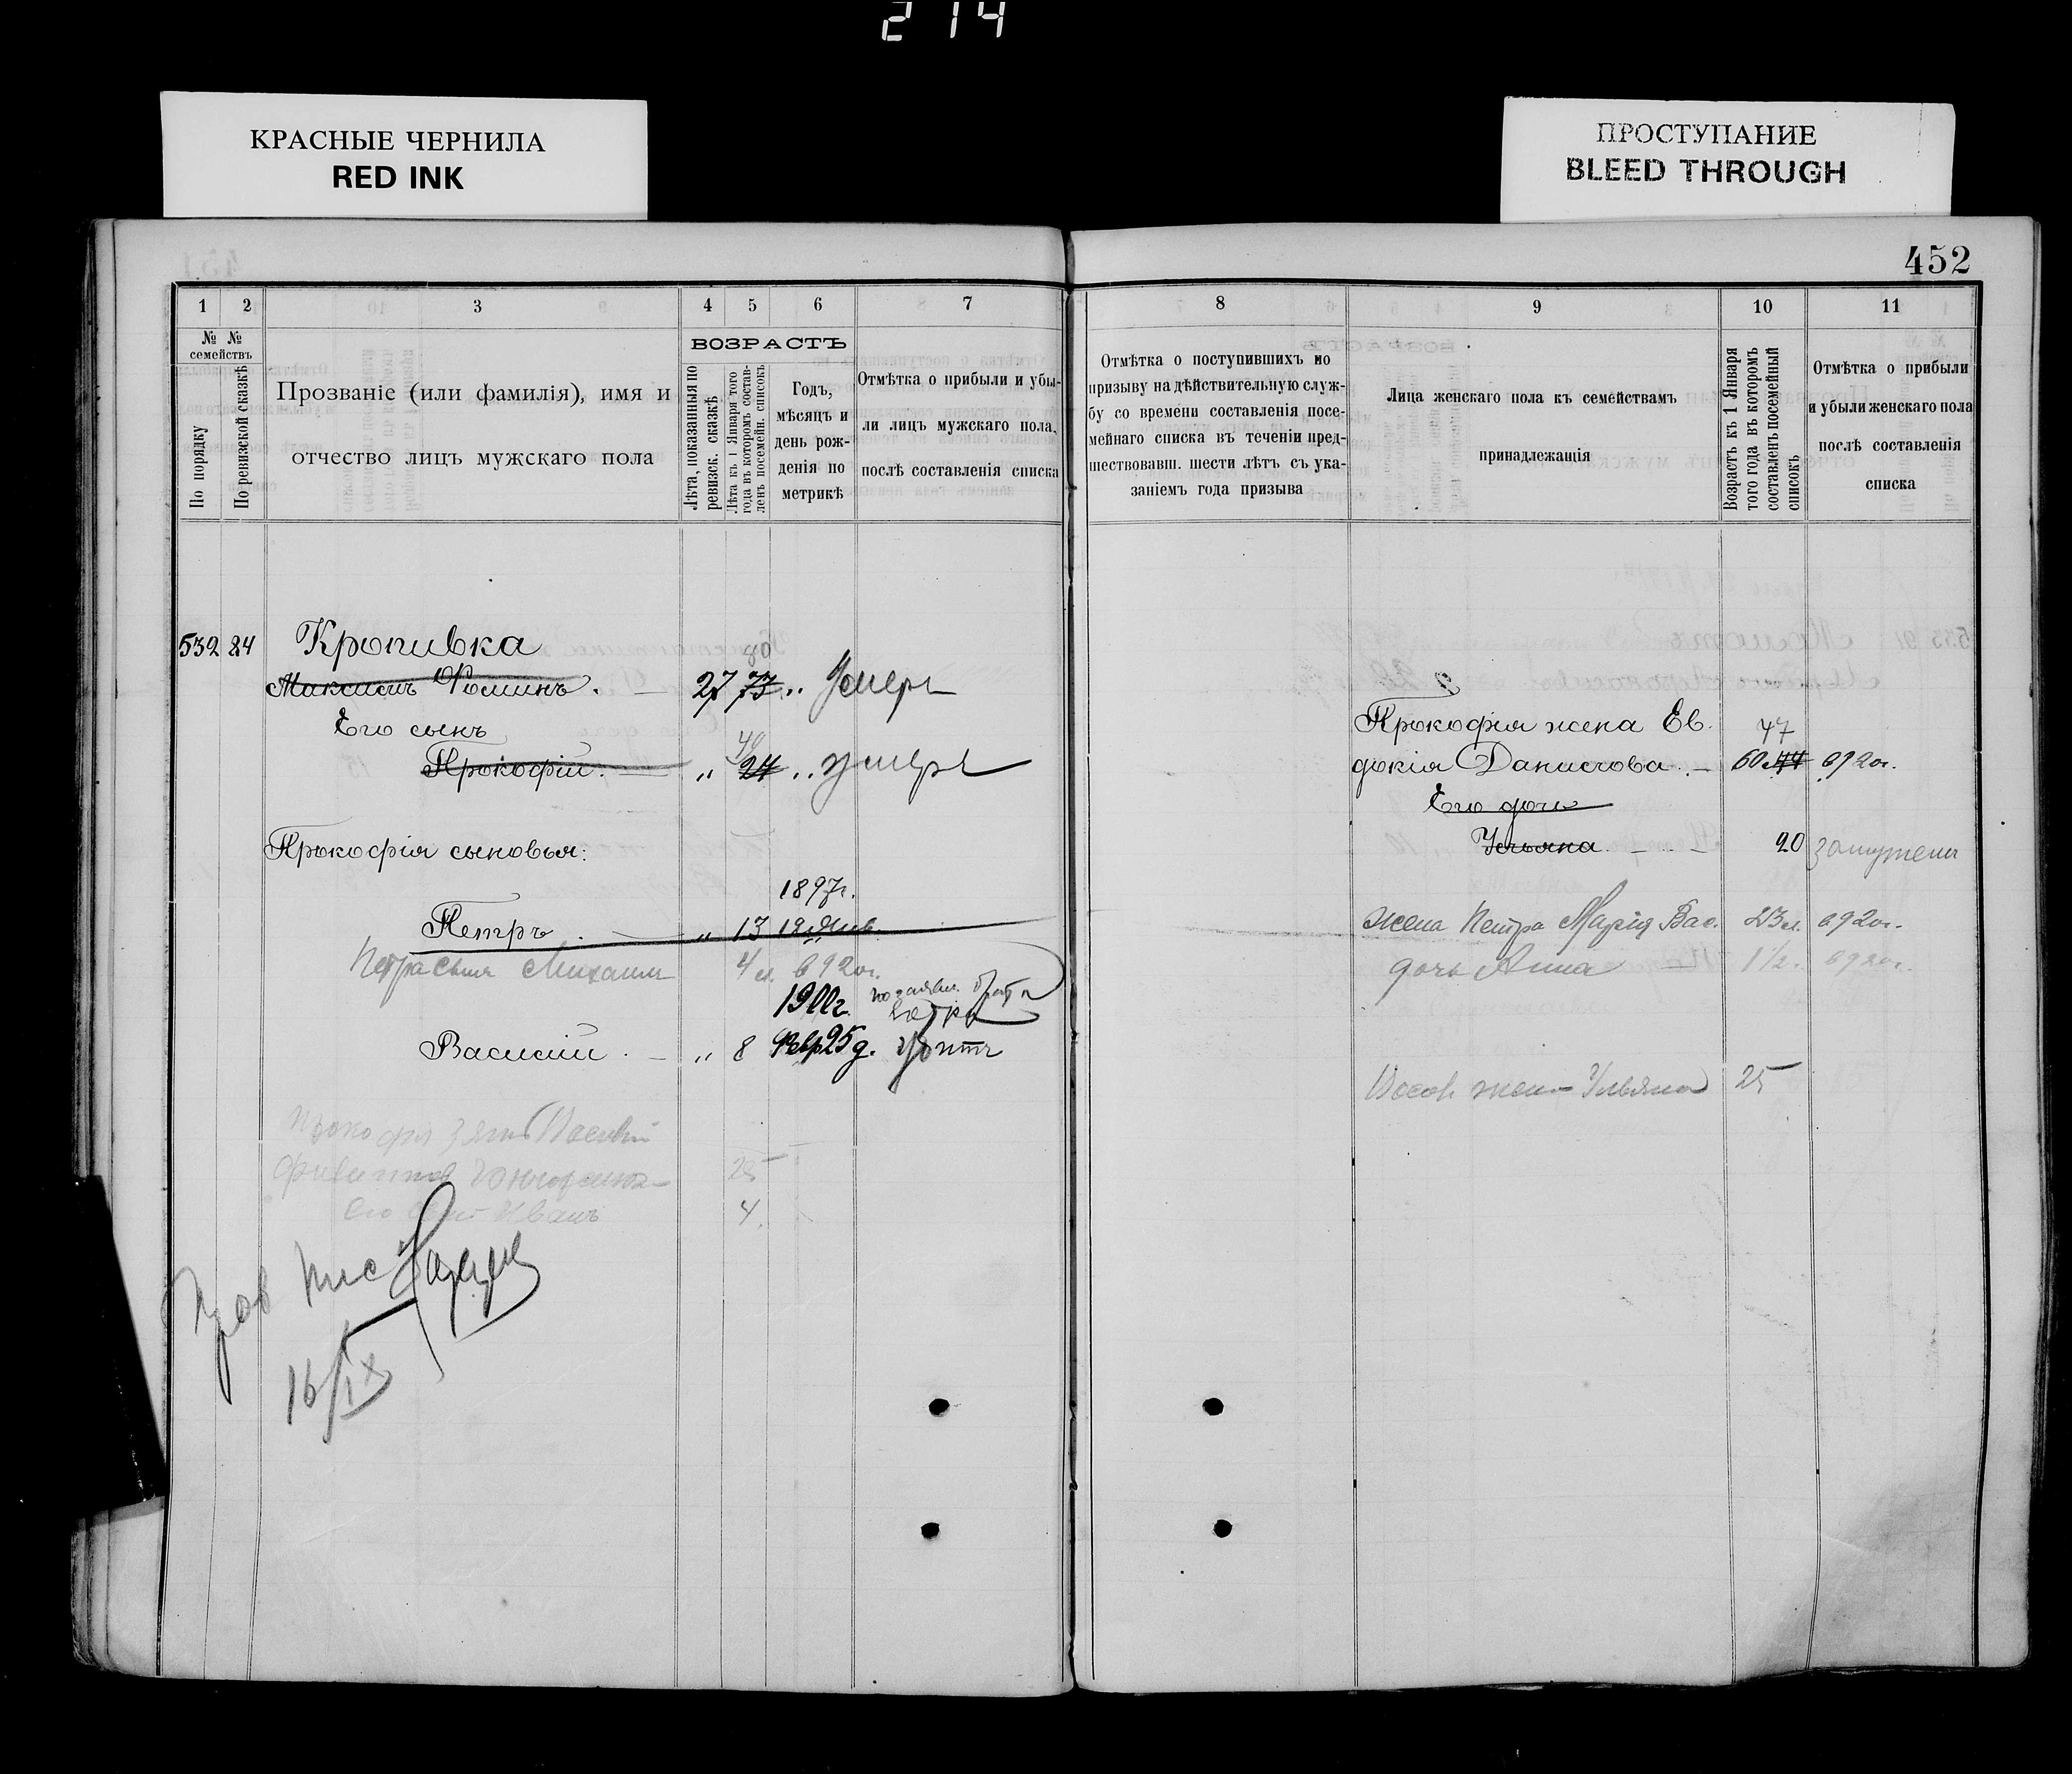 214
КРАСНЫЕ ЧЕРНИЛА
RED INK
ПРОСТУПАНИЕ
BLEED THROUGH
452
1 2 3 4 5 6 7
№ № семействъ
По порядку
По ревизской сказкѣ
Прозваніе (или фамилія), имя и
отчество лицъ мужскаго пола
ВОЗРАСТЪ
Лѣта, показанныя по
ревизск. сказкѣ
Лѣта къ 1 Января того
года въ которомъ состав-
ленъ посемейн. списокъ
Годъ,
мѣсяцъ и
день рож-
денія по
метрикѣ
Отмѣтка о прибыли и убы-
ли лицъ мужскаго пола,
послѣ составленія списка
532 84 Кропивка
80
Максимъ Фоминъ. 27 73 „ Умеръ
Его сынъ
49
Прокофій. „ 24 „ умеръ
Прокофія сыновья:
1897г.
Петръ „ 13 12 Янв.
Петра сынъ Михаилъ 4 л. в 920г.
1900г. по заявл. брата
Петра
Василій. „ 8 Февр 25 д. убитъ
Прокофія зять Василій
25
Его сынъ Иванъ 4.
16/IX
8 9 10 11
Отмѣтка о поступившихъ по
призыву на дѣйствительную служ-
бу со времени составленія посе-
мейнаго списка въ теченіи пред-
шествовавш. шести лѣтъ съ ука-
заніемъ года призыва
Лица женскаго пола къ семействамъ
принадлежащія
Возрастъ къ 1 Января
того года въ которомъ
составленъ посемейный
списокъ
Отмѣтка о прибыли
и убыли женскаго пола
послѣ составленія
списка
Прокофія жена Ев- 47
докія Данилова. 60 44 в 920г.
Его дочь
Ульяна 20 замужем
жена Петра Марія Вас. 23 л. в 920г.
дочь Анна 1½ г. в 920г.
Васил жена Ульяна 25